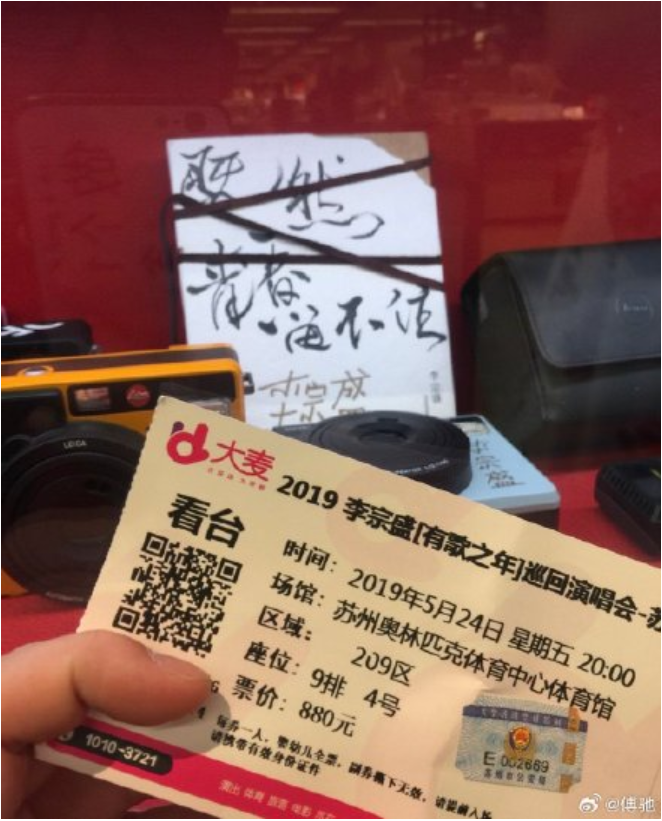 既然
青春
留不住
李宗盛
李宗盛
LEICA
李宗盛
大麦
2019 李宗盛[有歌之年]巡回演唱会-苏
看台
时间: 2019年5月24日 星期五 20:00
场馆: 苏州奥林匹克体育中心体育馆
区域: 209区
座位: 9排 4号
票价: 880元
每券一人,婴幼儿全票,副券撕下无效,请提前入场
请携带有效身份证件
E 002689
1010-3721
演出 体育 旅游 电影
@傅驰